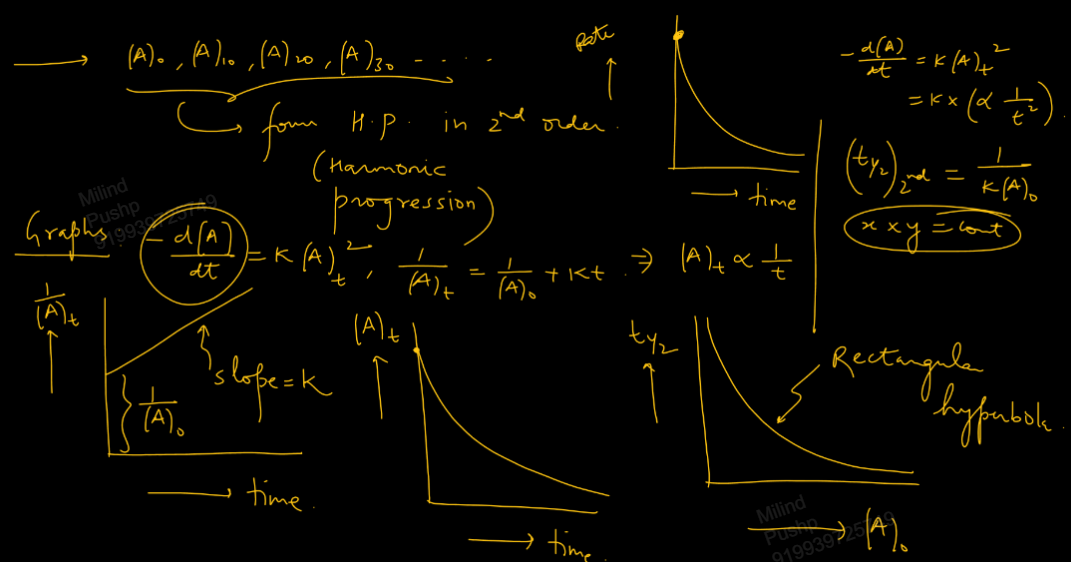 ⟶ (A)₀, (A)₁₀, (A)₂₀, (A)₃₀ - - . . .
form H.P. in 2nd order.
(Harmonic
progression)
rate ↑
⟶ time
-d(A)/dt = K(A)ₜ²
= K × (∝ 1/t²)
(t½)2nd = 1/K(A)₀
x × y = const
Milind
Pushp
Graphs.
-d[A]/dt = K(A)ₜ², 1/(A)ₜ = 1/(A)₀ + Kt. ⇒ (A)ₜ ∝ 1/t
1/(A)ₜ ↑
slope = K
1/(A)₀
⟶ time.
(A)ₜ ↑
⟶ time.
t½ ↑
Rectangular
hyperbola.
⟶ (A)₀
Milind
Pushp